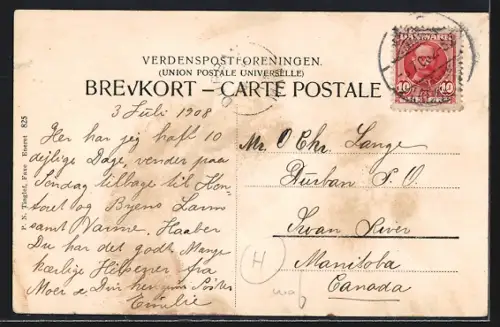 VERDENSPOSTFORENINGEN.
(UNION POSTALE UNIVERSELLE)
BREVKORT – CARTE POSTALE
DANMARK
10 10
P. N. Tinghof, Faxe Eneret 825
3 Juli 1908
Her har jeg haft 10
dejlige Dage, vender paa
Søndag tilbage til Kon-
toret og Byens Larm
samt Varme. Haaber
Du har det godt. Mange
kærlige Hilsener fra
Moer & Din hengivne Søster
Emilie
Mr. O Chr. Lange
Durban P. O.
Swan River
Manitoba
Canada
H